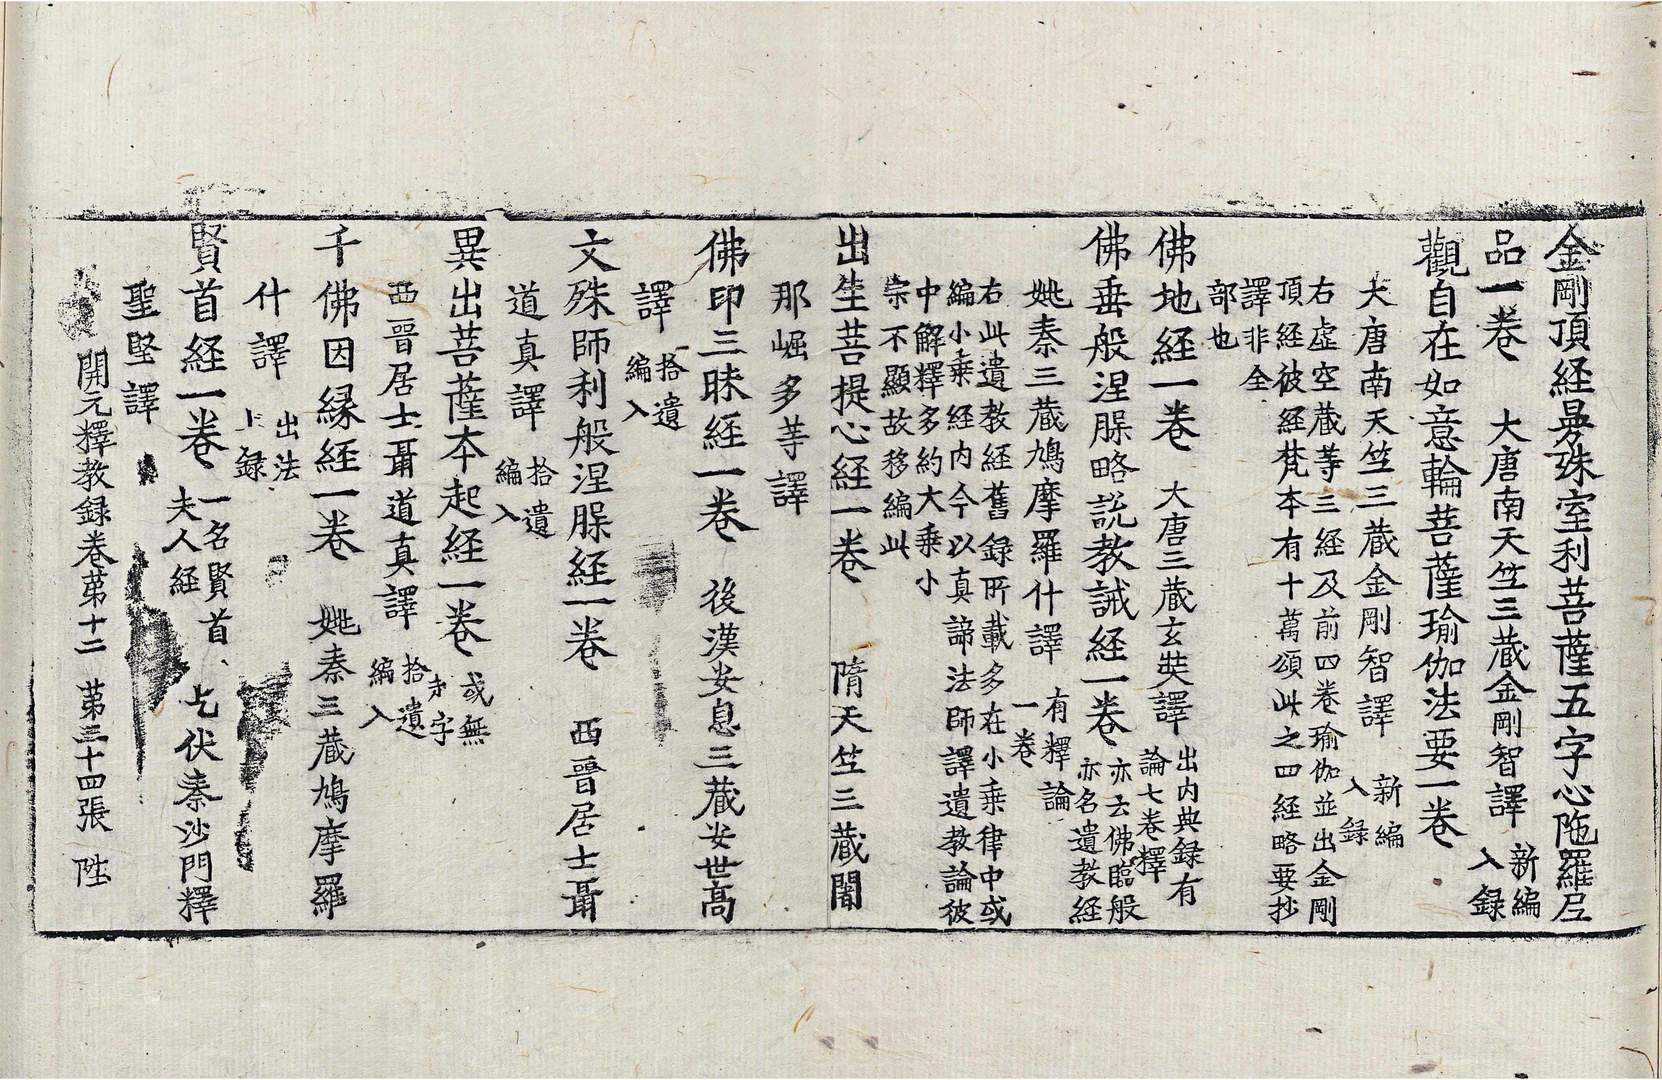 金剛頂経曼殊室利菩薩五字心陁羅尼
品一卷 大唐南天竺三藏金剛智譯 新編入録
觀自在如意輪菩薩瑜伽法要一卷
大唐南天竺三藏金剛智譯 新編入録
右虛空藏等三経及前四卷瑜伽並出金剛
頂経彼経梵本有十萬頌此之四経略要抄
譯非全
部也
佛地経一卷 大唐三藏玄奘譯 出内典録有論七卷釋
佛垂般涅脲略説教誡経一卷 亦云佛臨般亦名遺教経
姚秦三藏鳩摩羅什譯 有釋論一卷
右此遺教経舊録所載多在小乗律中或
編小乗経内今以真諦法師譯遺教論彼
中解釋多約大乗小
宗不顯故移編此
出生菩提心経一卷 隋天竺三藏闍
那崛多等譯
佛印三昧経一卷 後漢安息三藏安世髙
譯 拾遺編入
文殊師利般涅脲経一卷 西晉居士聶
道真譯 拾遺編入
異出菩薩本起経一卷 或無夲字
西晉居士聶道真譯 拾遺編入
千佛因縁経一卷 姚秦三藏鳩摩羅
什譯 出法上録
賢首経一卷 一名賢首夫人経 乞伏秦沙門釋
聖堅譯
開元釋教録卷苐十二 苐三十四張 陞